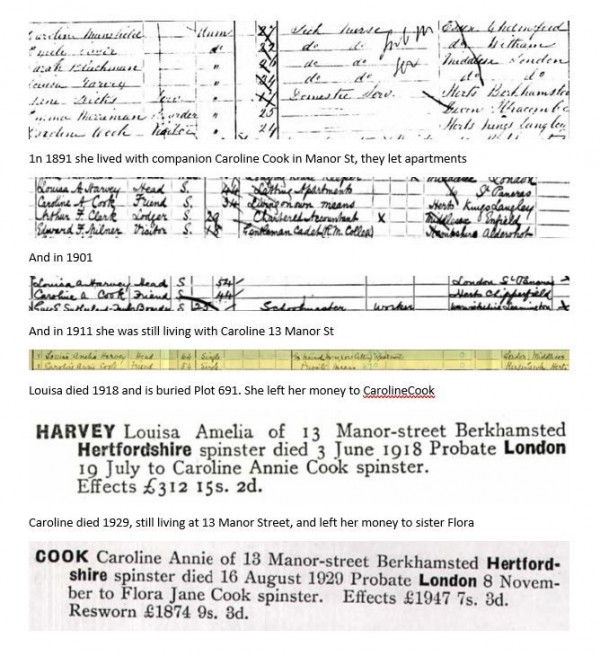 Caroline Mansfield Unm 27 Sick nurse Essex Chelmsford
do do do Witham
Sarah Blackman " do do Middlesex London
Louisa Harvey " 24 do do do do
Jane Serv " Domestic Serv Herts Berkhamsted
Emma Boarder " 25 Devon Ilfracombe
Caroline Cook Visitor " 24 Herts Kings Langley
1n 1891 she lived with companion Caroline Cook in Manor St, they let apartments
Louisa A Harvey Head S. 44 Letting Apartments St Pancras
Caroline A Cook Friend S. 34 Living on own means Herts Kings Langley
Arthur F. Clark Lodger S. 29 Chartered Accountant X Middlesex Enfield
Edward F. Milner Visitor S. 18 Gentleman Cadet (R.M. College) Hampshire Aldershot
And in 1901
Louisa A Harvey Head S 54 London St Pancras
Caroline A Cook Friend S 44 Herts Chipperfield
S 25 Schoolmaster Worker
And in 1911 she was still living with Caroline 13 Manor St
Louisa Amelia Harvey Head 64 Single London Middlesex
Caroline Annie Cook Friend 54 Single Private means
Louisa died 1918 and is buried Plot 691. She left her money to CarolineCook
HARVEY Louisa Amelia of 13 Manor-street Berkhamsted
Hertfordshire spinster died 3 June 1918 Probate London
19 July to Caroline Annie Cook spinster.
Effects £312 15s. 2d.
Caroline died 1929, still living at 13 Manor Street, and left her money to sister Flora
COOK Caroline Annie of 13 Manor-street Berkhamsted Hertford-
shire spinster died 16 August 1929 Probate London 8 Novem-
ber to Flora Jane Cook spinster. Effects £1947 7s. 3d.
Resworn £1874 9s. 3d.